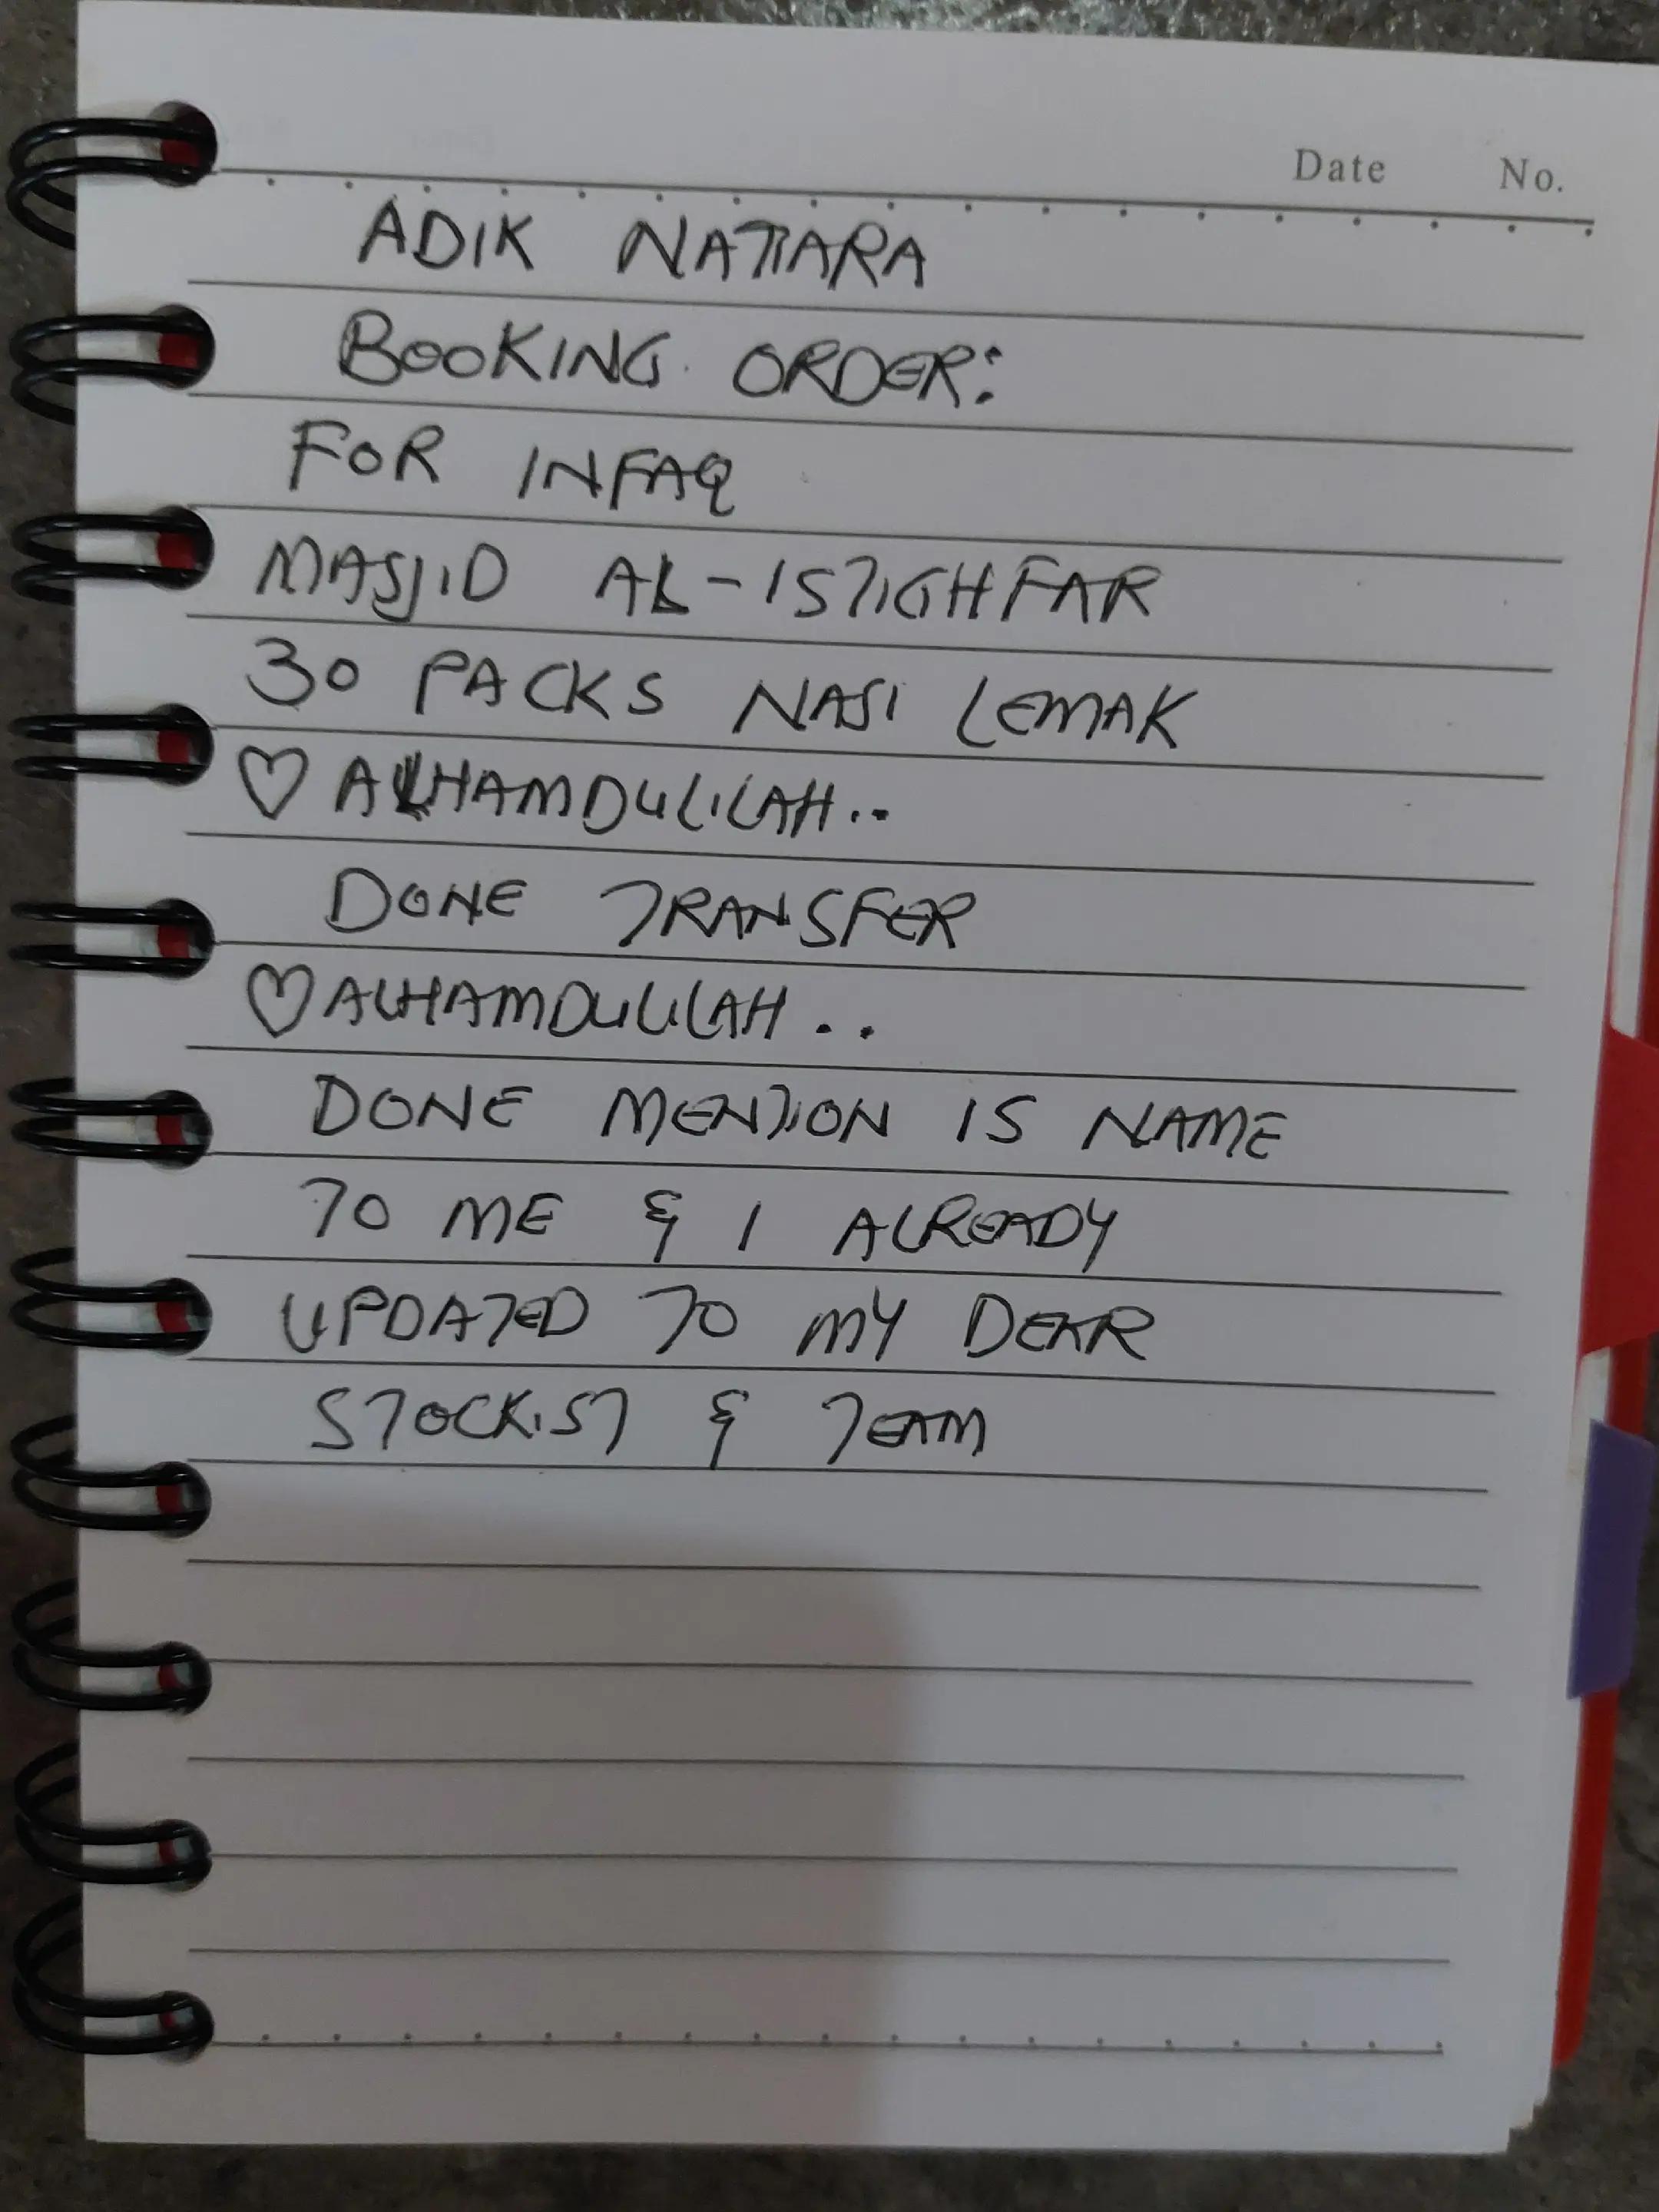 Date No.
ADIK NATIARA
BOOKING ORDER:
FOR INFAQ
MASJID AL-ISTIGHFAR
30 PACKS NASI LEMAK
♡ ALHAMDULILAH..
DONE TRANSFER
♡ ALHAMDULILAH..
DONE MENTION IS NAME
TO ME & I ALREADY
UPDATED TO MY DEAR
STOCKIST & TEAM